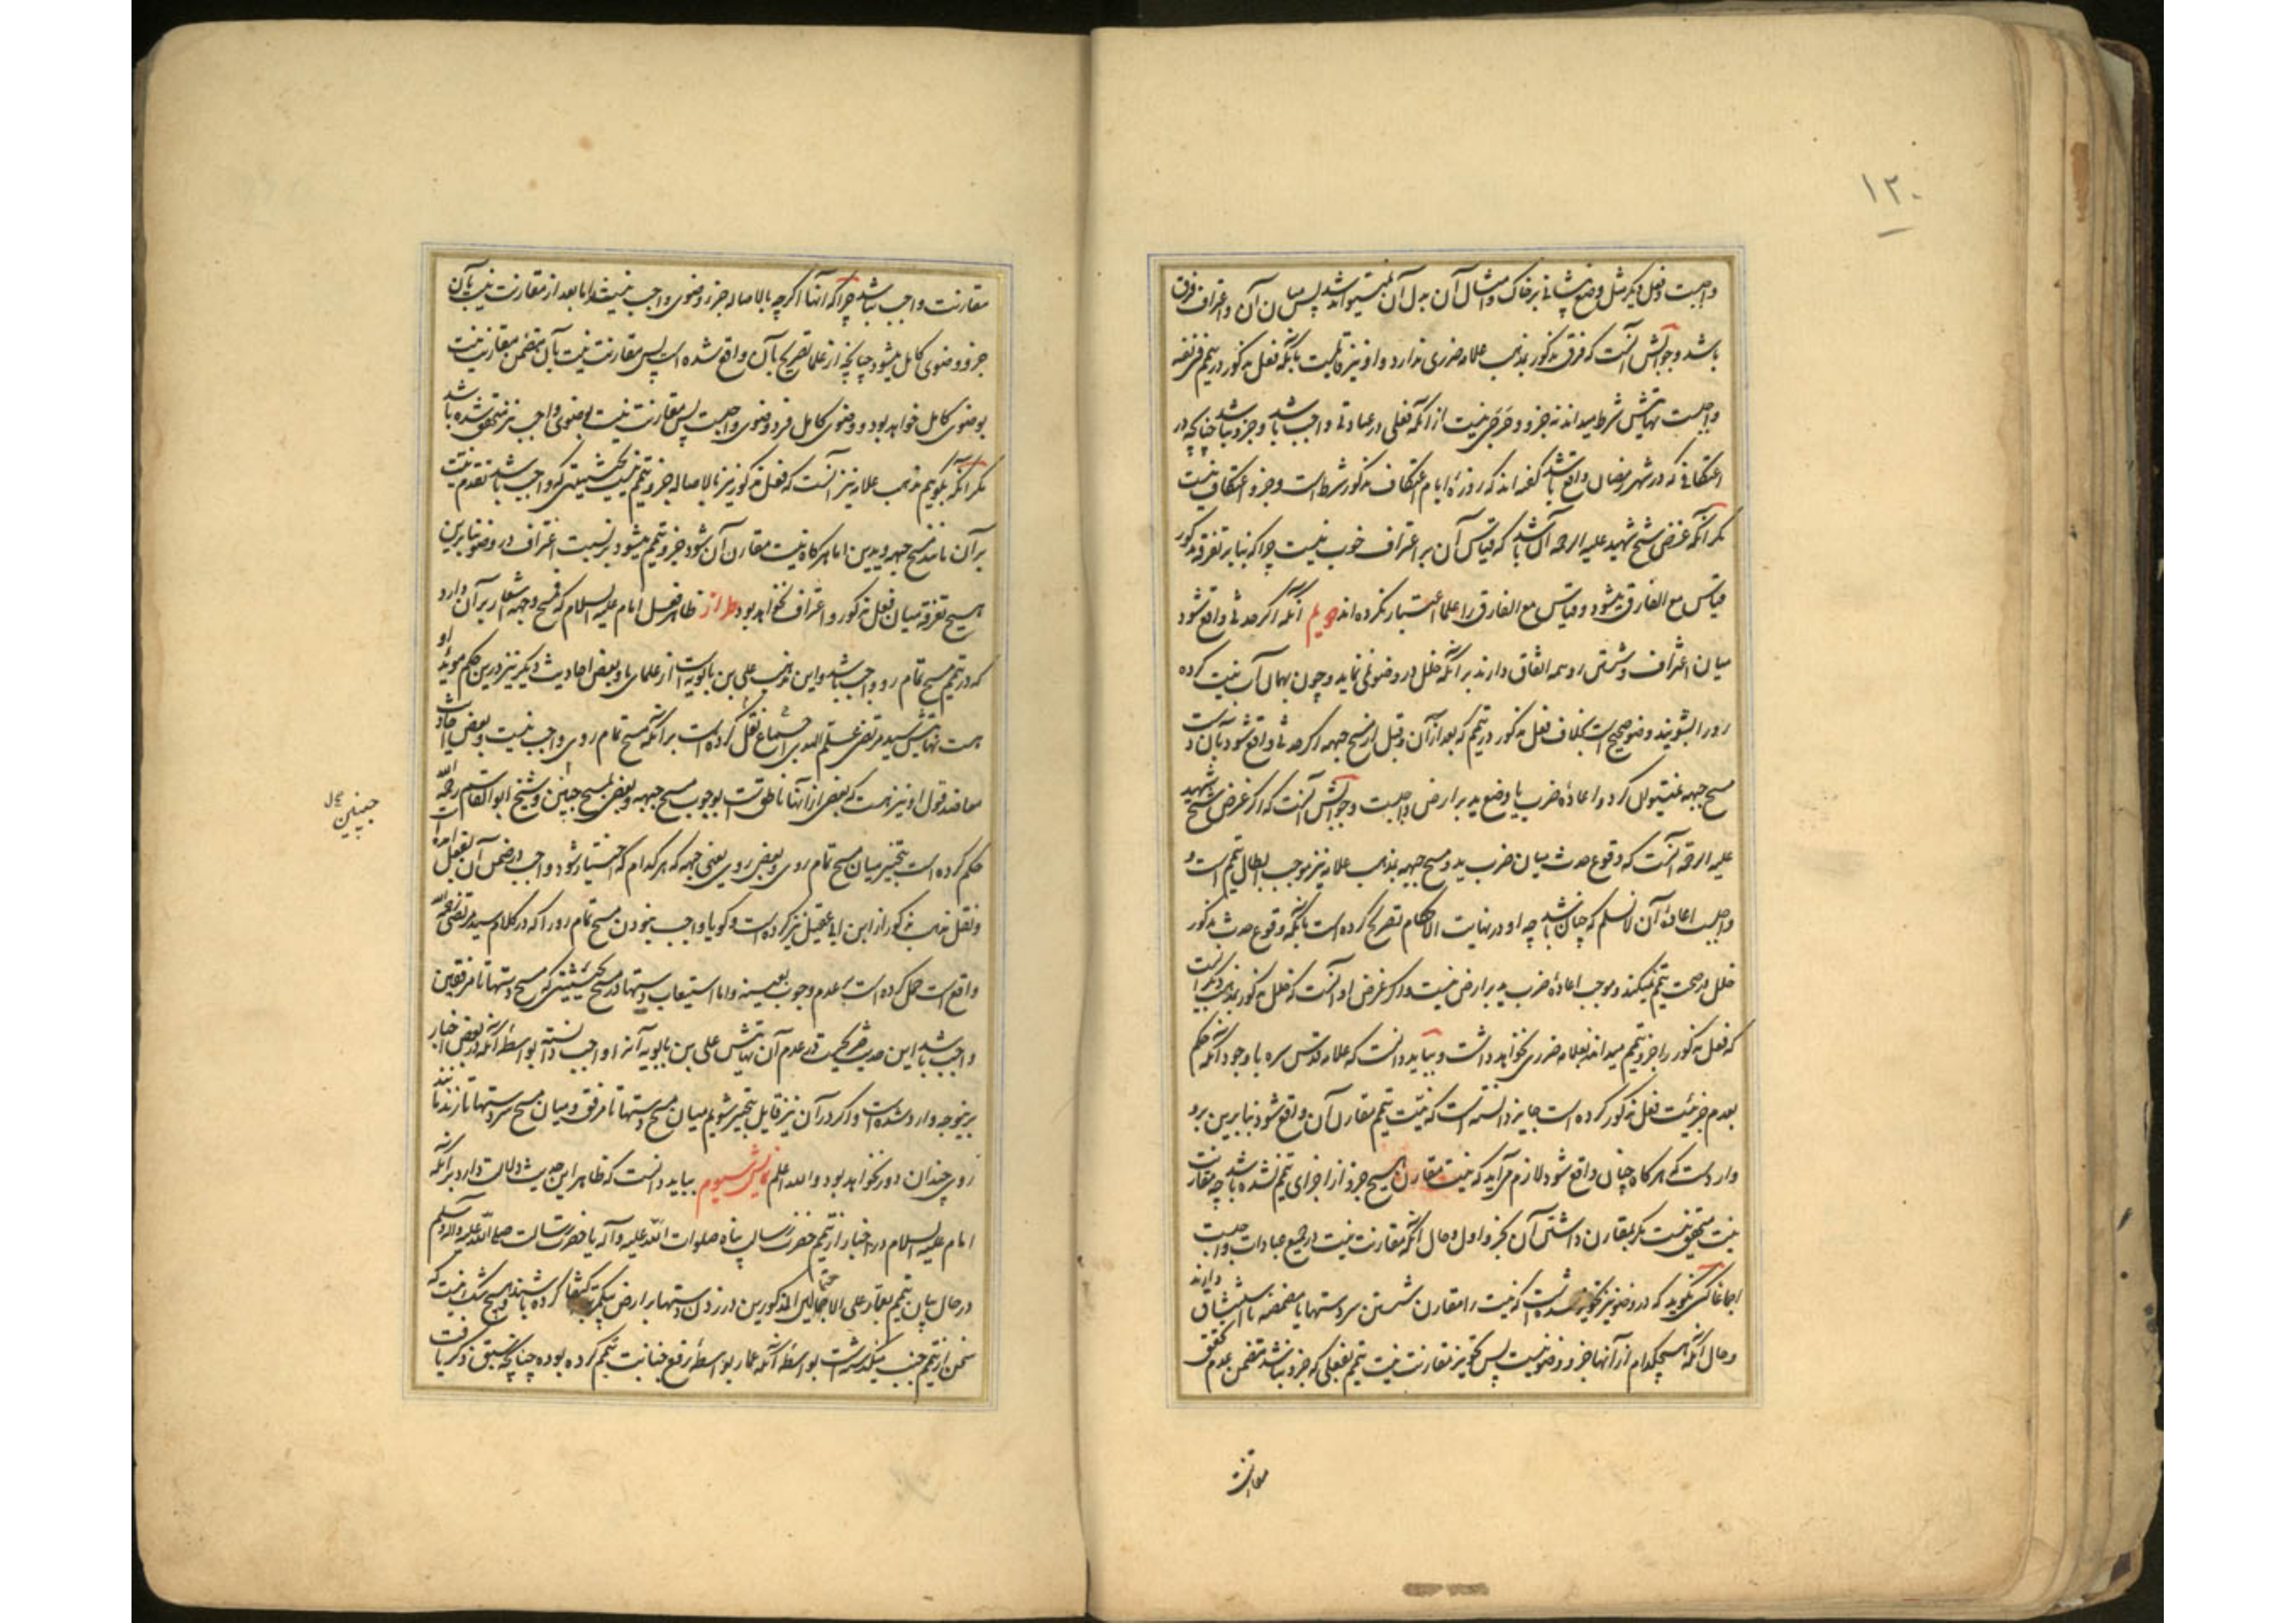 ۱۲۰
واجبست و فعل دیگر مثل وضع پیشانی بر خاک و امثال آن بدل آن نمیتواند شد پس میان آن و اغتراف فرق
باشد و جوابش آنست که فرق مذکور بمذهب علامه ضرری ندارد و او نیز قایلست بآنکه فعل مذکور در تیمم فریضه
واجبست نهایتش شرط میداند نه جزو و حرجی نیست از آنکه فعلی در عبادتی واجب باشد و جزو نباشد چنانچه در
اعتکافی که در شهر رمضان واقع باشد گفته اند که روزهٔ ایام اعتکاف مذکور شرط است و جزو اعتکاف نیست
مگر آنکه غرض شیخ شهید علیه الرحمه آن باشد که قیاس آن بر اغتراف خوب نیست چرا که بنا بر تفرقهٔ مذکور
قیاس مع الفارق میشود و قیاس مع الفارق را علما اعتبار نکرده اند دویم آنکه اگر حدثی واقع شود
میان اغتراف و شستن رو همه اتفاق دارند بر آنکه خلل در وضو نمی نماید و چون بهمان آب نیت کرده
رو را بشویند وضو صحیح است بخلاف فعل مذکور در تیمم که بعد از آن و قبل از مسح جبهه اگر حدثی واقع شود بآن دست
مسح جبهه نمیتوان کرد و اعادهٔ ضرب یا وضع ید بر ارض واجبست و جوابش آنست که اگر غرض شیخ شهید
علیه الرحمه آنست که وقوع حدث میان ضرب ید و مسح جبهه بمذهب علامه نیز موجب ابطال تیمم است و
واجبست اعادهٔ آن لا نسلم که چنان باشد چه او در نهایت الاحکام تصریح کرده است بآنکه وقوع حدث مذکور
خلل در صحت تیمم نمیکند و موجب اعادهٔ ضرب ید بر ارض نیست و اگر غرض او آنست که خلل مذکور بمذهب دیگرانست
که فعل مذکور را جزو تیمم میدانند بعلامه ضرری نخواهد داشت و بباید دانست که علامه قدس سره با وجود آنکه حکم
بعدم جزئیت فعل مذکور کرده است جایز دانسته است که نیت تیمم مقارن آن واقع شود بنا برین برو
وارد است که هرگاه چنان واقع شود لازم می آید که نیت مقارن هیچ جزو از اجزای تیمم نشده باشد چه مقارنت
نیت متحقق نیست مگر بمقارن داشتن آن بجزو اول و حال آنکه مقارنت نیت در جمیع عبادات واجبست
اجماعا کسی نگوید که در وضو نیز تجویز شده است که نیت را مقارن شستن سر دستها یا مضمضه یا استنشاق دارند
و حال آنکه هیچکدام از آنها جزو وضو نیست پس تجویز مقارنت نیت تیمم بفعلی که جزو نباشد متضمن عدم تحقق
مقارنت
مقارنت واجب نباشد چرا که آنها اگرچه بالاصاله جزو وضوی واجب نیستند اما بعد از مقارنت نیت بآن
جزو وضوی کامل میشود چنانچه از علما تصریح بآن واقع شده است پس مقارنت نیت بآن متضمن مقارنت نیت
بوضوی کامل خواهد بود و وضوی کامل فرد وضوی واجبست پس مقارنت نیت بوضوی واجب نیز متحقق شده باشد
مگر آنکه بگویم مذهب علامه نیز آنست که فعل مذکور نیز بالاصاله جزو تیمم نیست بحیثیتی که واجب باشد تقدم نیت
بر آن مانند مسح جبهه و یدین اما هرگاه نیت مقارن آن شود جزو تیمم میشود بر نسبت اغتراف در وضو بنا برین
هیچ تفرقه میان فعل مذکور و اغتراف نخواهد بود طراز ظاهر فعل امام علیه السلام که فمسح وجهه اشعار بر آن دارد
که در تیمم مسح تمام رو واجب باشد و این مذهب علی بن بابویه است از علمای ما و بعض احادیث دیگر نیز درین حکم مؤید او
هست نهایتش سید مرتضی علم الهدی اجماع نقل کرده است بر آنکه مسح تمام روی واجب نیست و بعض احادیث
معاضد قول او نیز هست که بعض از آنها ناطق است بوجوب مسح جبهه و بعض بمسح جبینین و شیخ ابوالقاسم رحمه الله
حکم کرده است بتخییر میان مسح تمام روی و بعض روی یعنی جبهه که هر کدام که اختیار شود واجب در ضمن آن بعمل آمده است
و نقل مذهب مذکور از ابن ابی عقیل نیز کرده است و گویا واجب نبودن مسح تمام رو را که در کلام سید مرتضی رحمه الله
واقع است حمل کرده است بر عدم وجوب بعینه و اما استیعاب دستها در مسح بحیثیتی که مسح دستها تا مرفقین
واجب باشد این حدیث صریحست در عدم آن نهایتش علی بن بابویه آنرا واجب دانسته بواسطهٔ آنکه در بعض اخبار
برینوجه وارد شده است و اگر در آن نیز قایل بتخییر شویم میان مسح دستها تا مرفق و میان مسح سر دستها تا زند
زوی چندان دور نخواهد بود و الله اعلم نمایش سیوم بباید دانست که ظاهر این حدیث دلالت دارد بر آنکه
امام علیه السلام در اخبار از تیمم حضرت رسالت پناه صلوات الله علیه و آله یا حضرت رسالت صلی الله علیه و آله و سلم
در حال بیان تیمم بعمار علی الاحتمالین المذکورین در زدن دستها بر ارض بیکمرتبه اکتفا کرده باشند و هیچ شک نیست که
سخن از تیمم جنب میگذشت بواسطهٔ آنکه عمار بواسطهٔ رفع جنابت تیمم کرده بوده چنانچه سبق ذکر یافت
جبینین